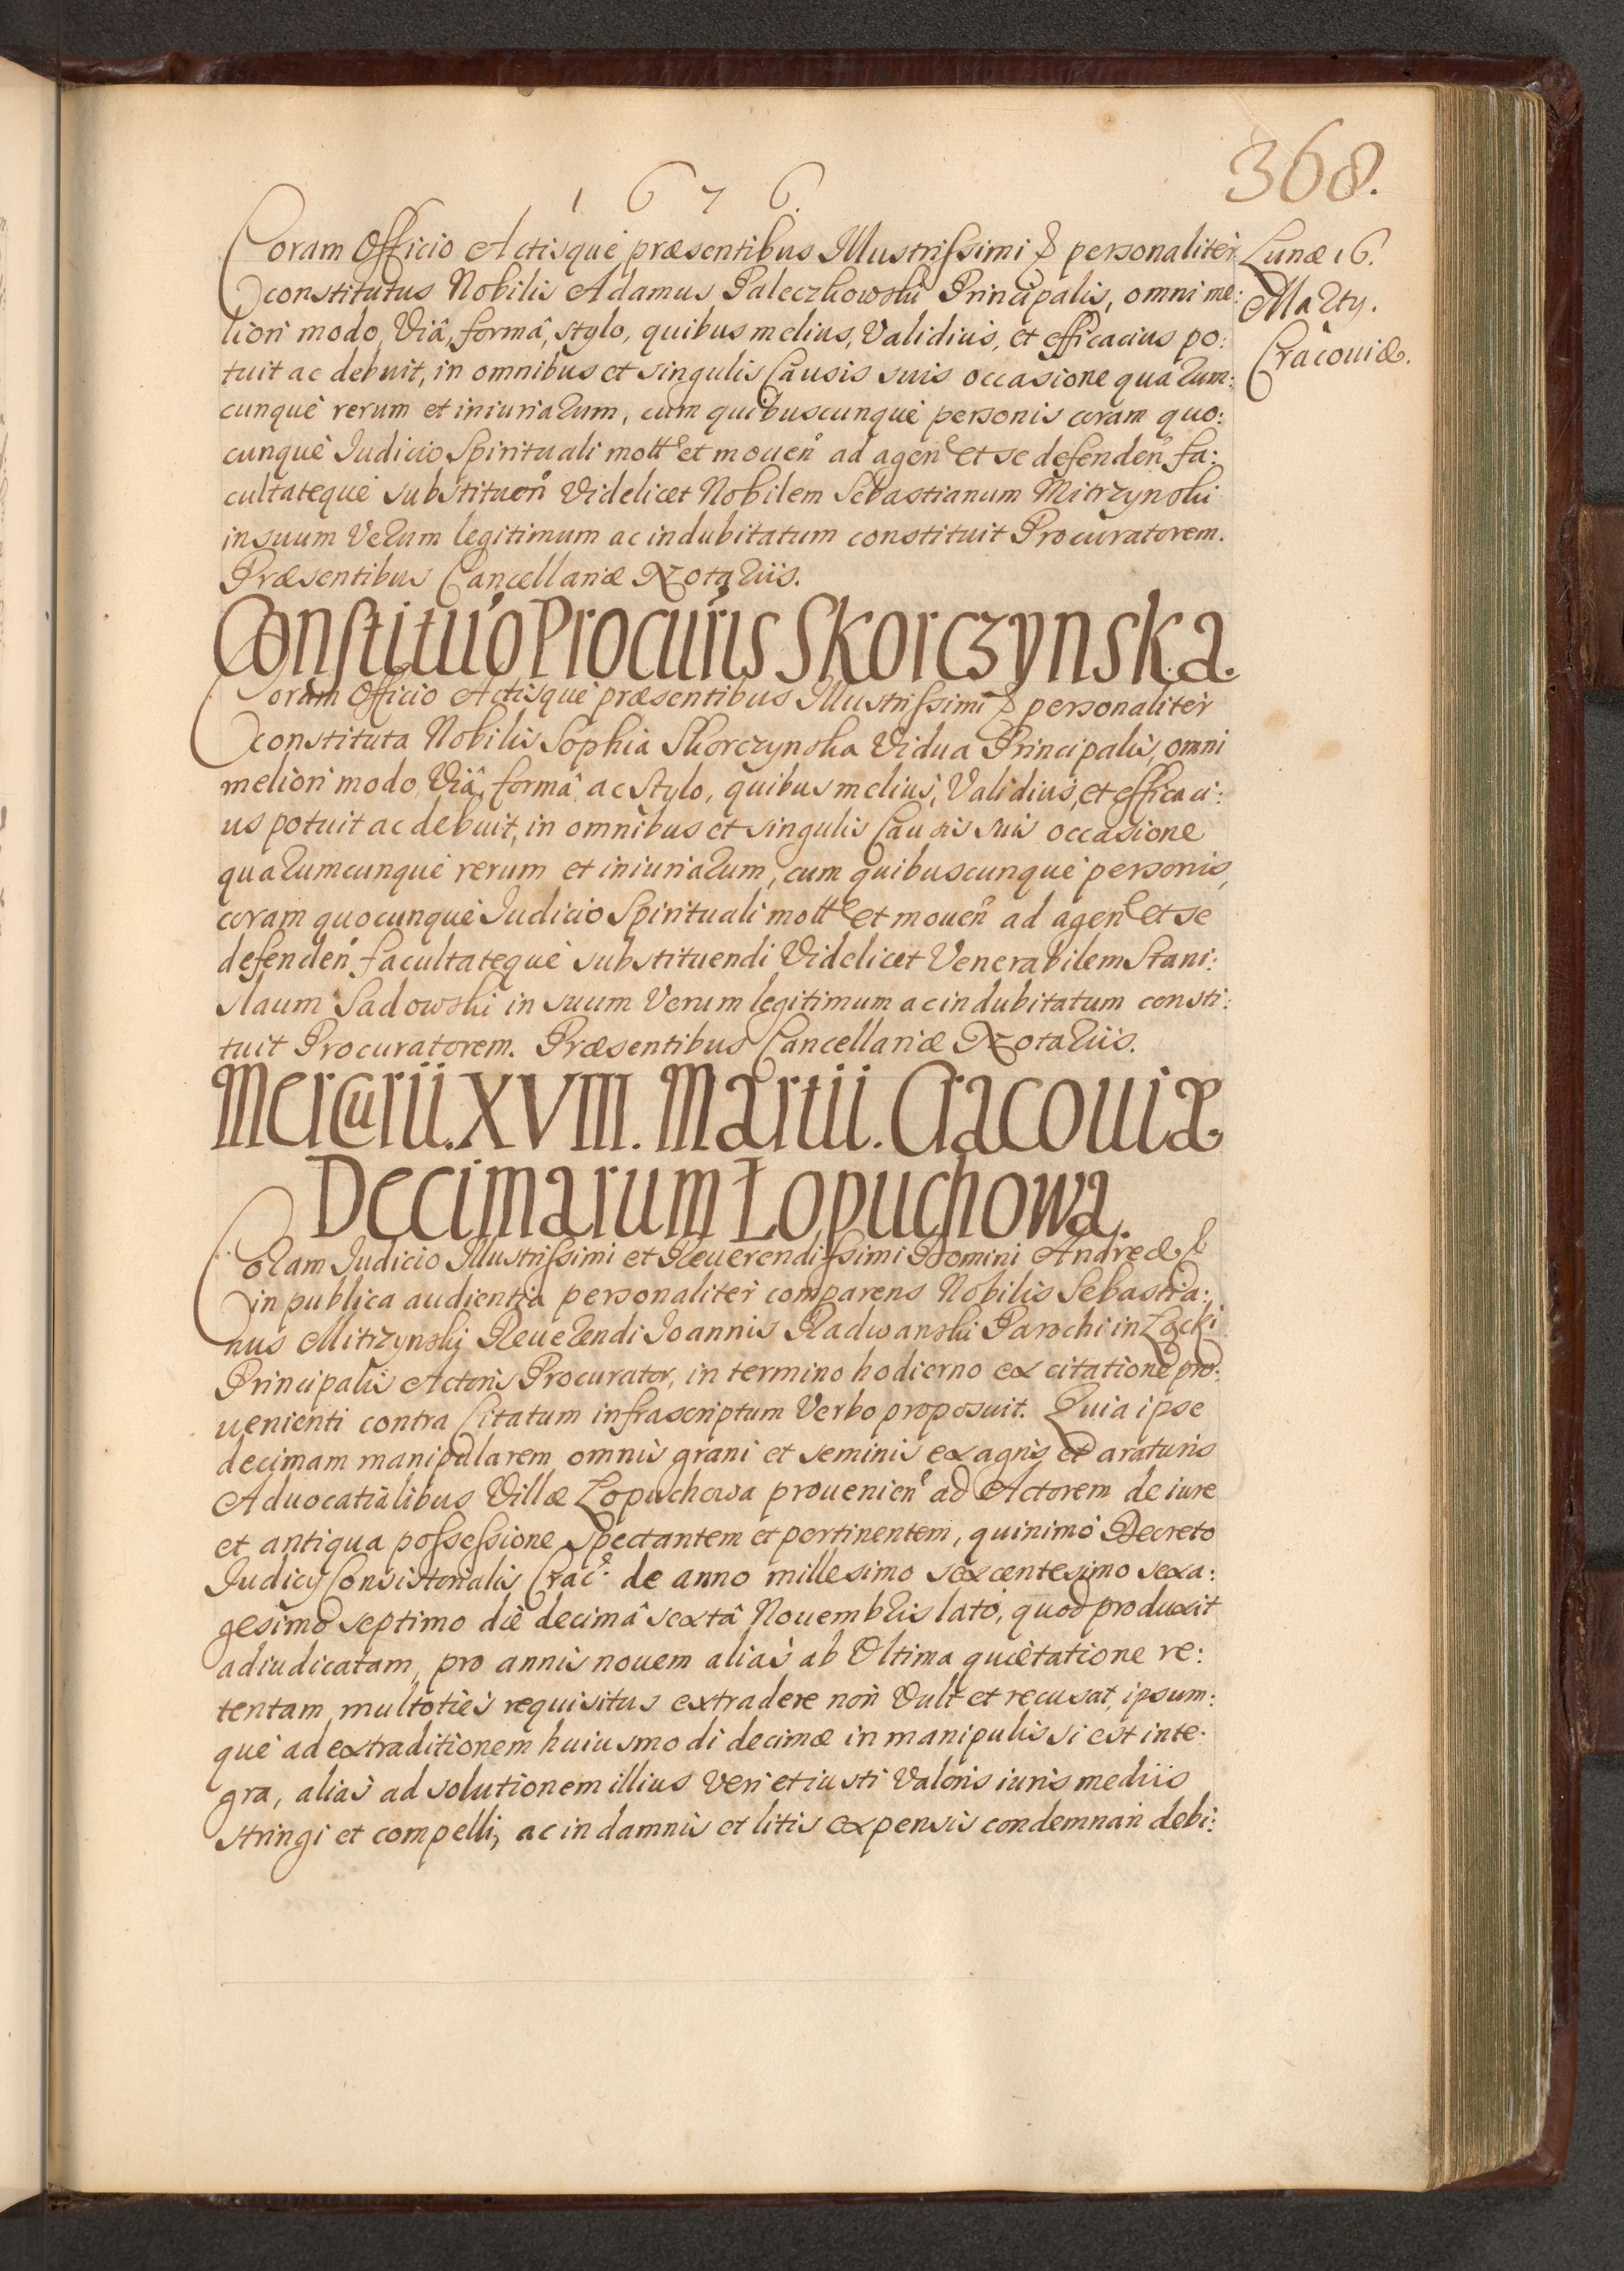 368.
1676.
Coram Officio Actisque præsentibus Illustrissimi & personaliter
constitutus Nobilis Adamus Paleczkowski Principalis, omni me:
liori modo, Viâ, formâ, stylo, quibus melius, Validius, et efficacius po:
tuit ac debuit, in omnibus et singulis Causis suis occasione quarum:
cunque rerum et iniuriarum, cum quibuscunque personis coram quo:
cunque Iudicio Spirituali mott et mouen ad agen et se defenden fa:
cultateque substituen Videlicet Nobilem Sebastianum Mitrzynski
in suum Verum legitimum ac indubitatum constituit Procuratorem.
Præsentibus Cancellariæ Notariis.
Lunæ 16.
Marty.
Cracouiæ.
Constituo Procuris Skorczynska.
Coram Officio Actisque præsentibus Illustrissimi & personaliter
constituta Nobilis Sophia Skorczynska Vidua Principalis, omni
meliori modo, Viâ, formâ ac Stylo, quibus melius, Validius, et efficaci:
us potuit ac debuit, in omnibus et singulis Causis suis occasione
quarumcunque rerum et iniuriarum, cum quibuscunque personis,
coram quocunque Iudicio Spirituali mott et mouen ad agen et se
defenden facultateque substituendi Videlicet Venerabilem Stani:
slaum Sadowski in suum Verum legitimum ac indubitatum consti:
tuit Procuratorem. Præsentibus Cancellariæ Notariis.
Mercurii. XVIII. Martii. Cracouiæ
Decimarum Łopuchowa.
Coram Iudicio Illustrissimi et Reuerendissimi Domini Andreæ &
in publica audientia personaliter comparens Nobilis Sebastia:
nus Mitrzynski Reuerendi Ioannis Radwanski Parochi in Łącki
Principalis Actoris Procurator, in termino hodierno ex citatione pro:
uenienti contra Citatum infrascriptum Verbo proposuit. Quia ipse
decimam manipularem omnis grani et seminis ex agris et araturis
Aduocatialibus Villæ Łopuchowa prouenien ad Actorem de iure
et antiqua possessione Spectantem et pertinentem, quinimo Decreto
Iudicy Consistorialis Crac. de anno millesimo sexcentesimo sexa:
gesimo septimo die decimâ sextâ Nouembris lato, quod produxit
adiudicatam, pro annis nouem alias ab Vltima quietatione re:
tentam, multoties requisitus extradere non Vult et recusat, ipsum:
que ad extraditionem huiusmodi decimæ in manipulis si est inte:
gra, alias ad solutionem illius veri et iusti Valoris iuris mediis
stringi et compelli, ac in damnis et litis expensis condemnari debi: